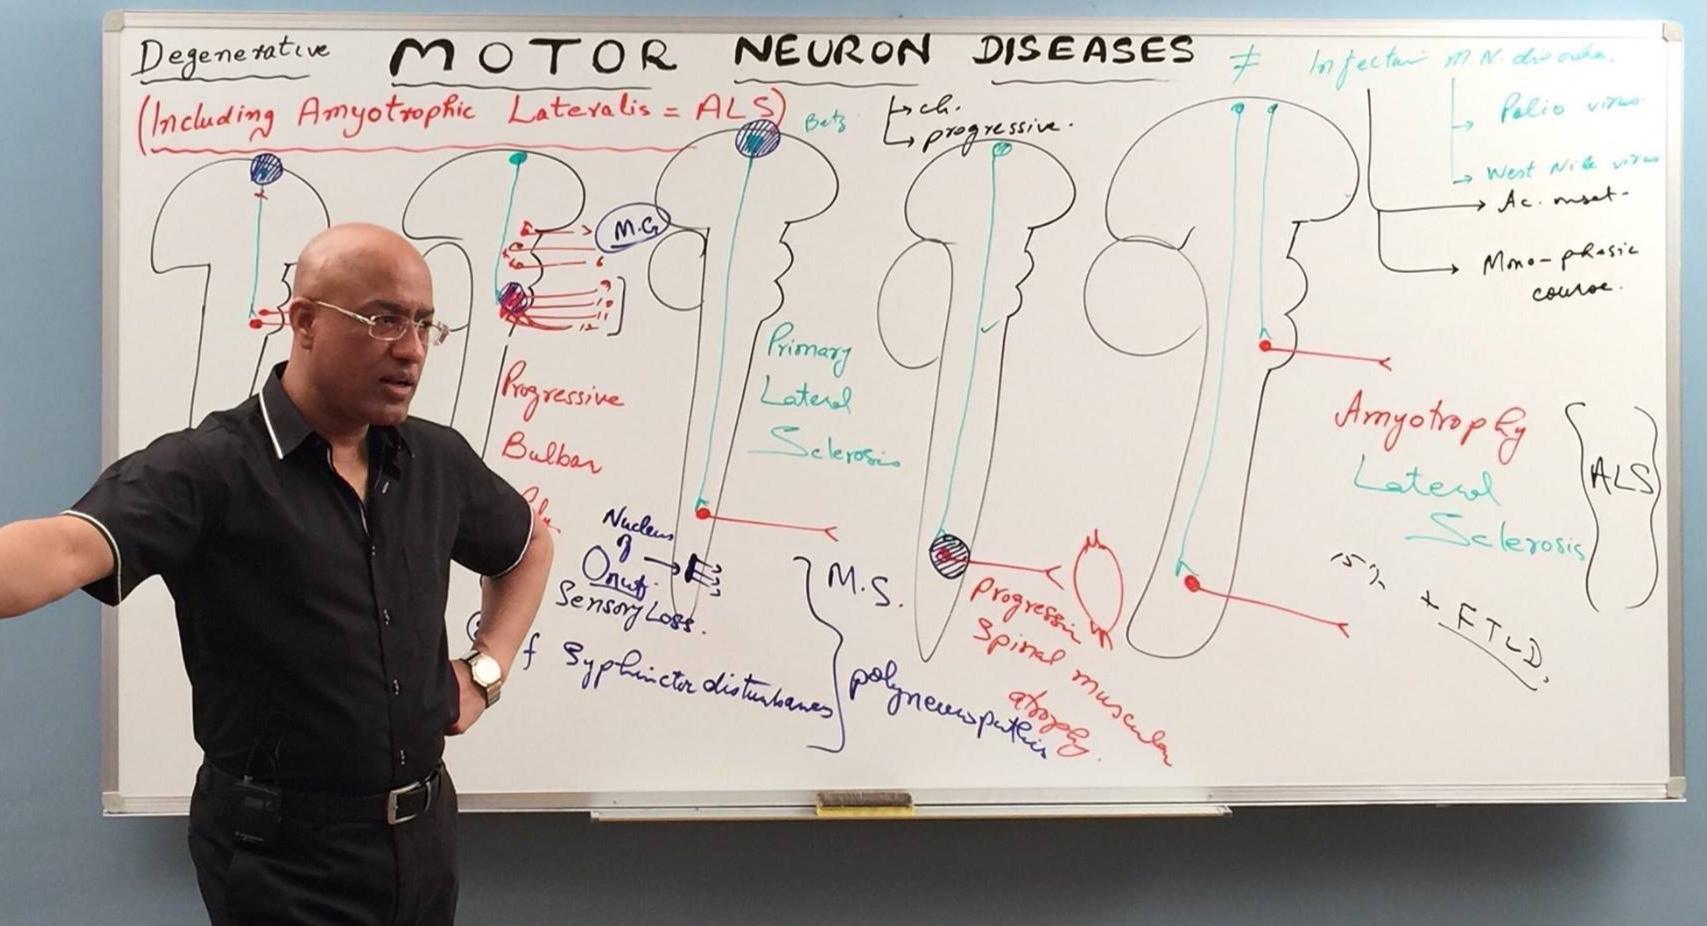 Degenerative MOTOR NEURON DISEASES ≠ Infectin M.N. disorder.
(Including Amyotrophic Lateralis = ALS)
Betz
ch.
progressive.
Polio virus
West Nile virus
Ac. onset-
Mono-phasic
course.
M.G
9
10
11
12
Progressive
Bulbar
Primary
Lateral
Sclerosis
Nucleus
of
Onuf.
Sensory Loss.
Syphinctor disturbances
M.S.
polyneuropathies
Progressive
Spinal muscular
atrophy.
Amyotrophy
Lateral
Sclerosis
ALS
15%
+ FTLD.